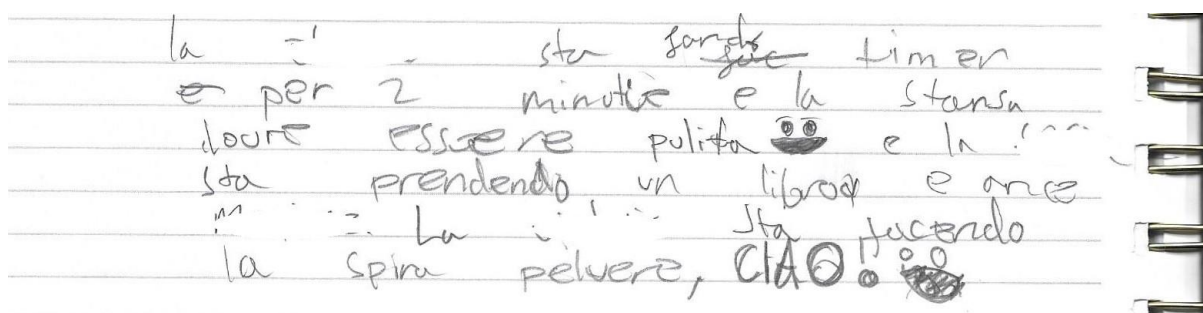 la sta fando timer
per 2 minuti e la stansa
dovre essere pulita e la
sta prendendo un libro e ance
La sta facendo
la spira pelvere, CIAO!